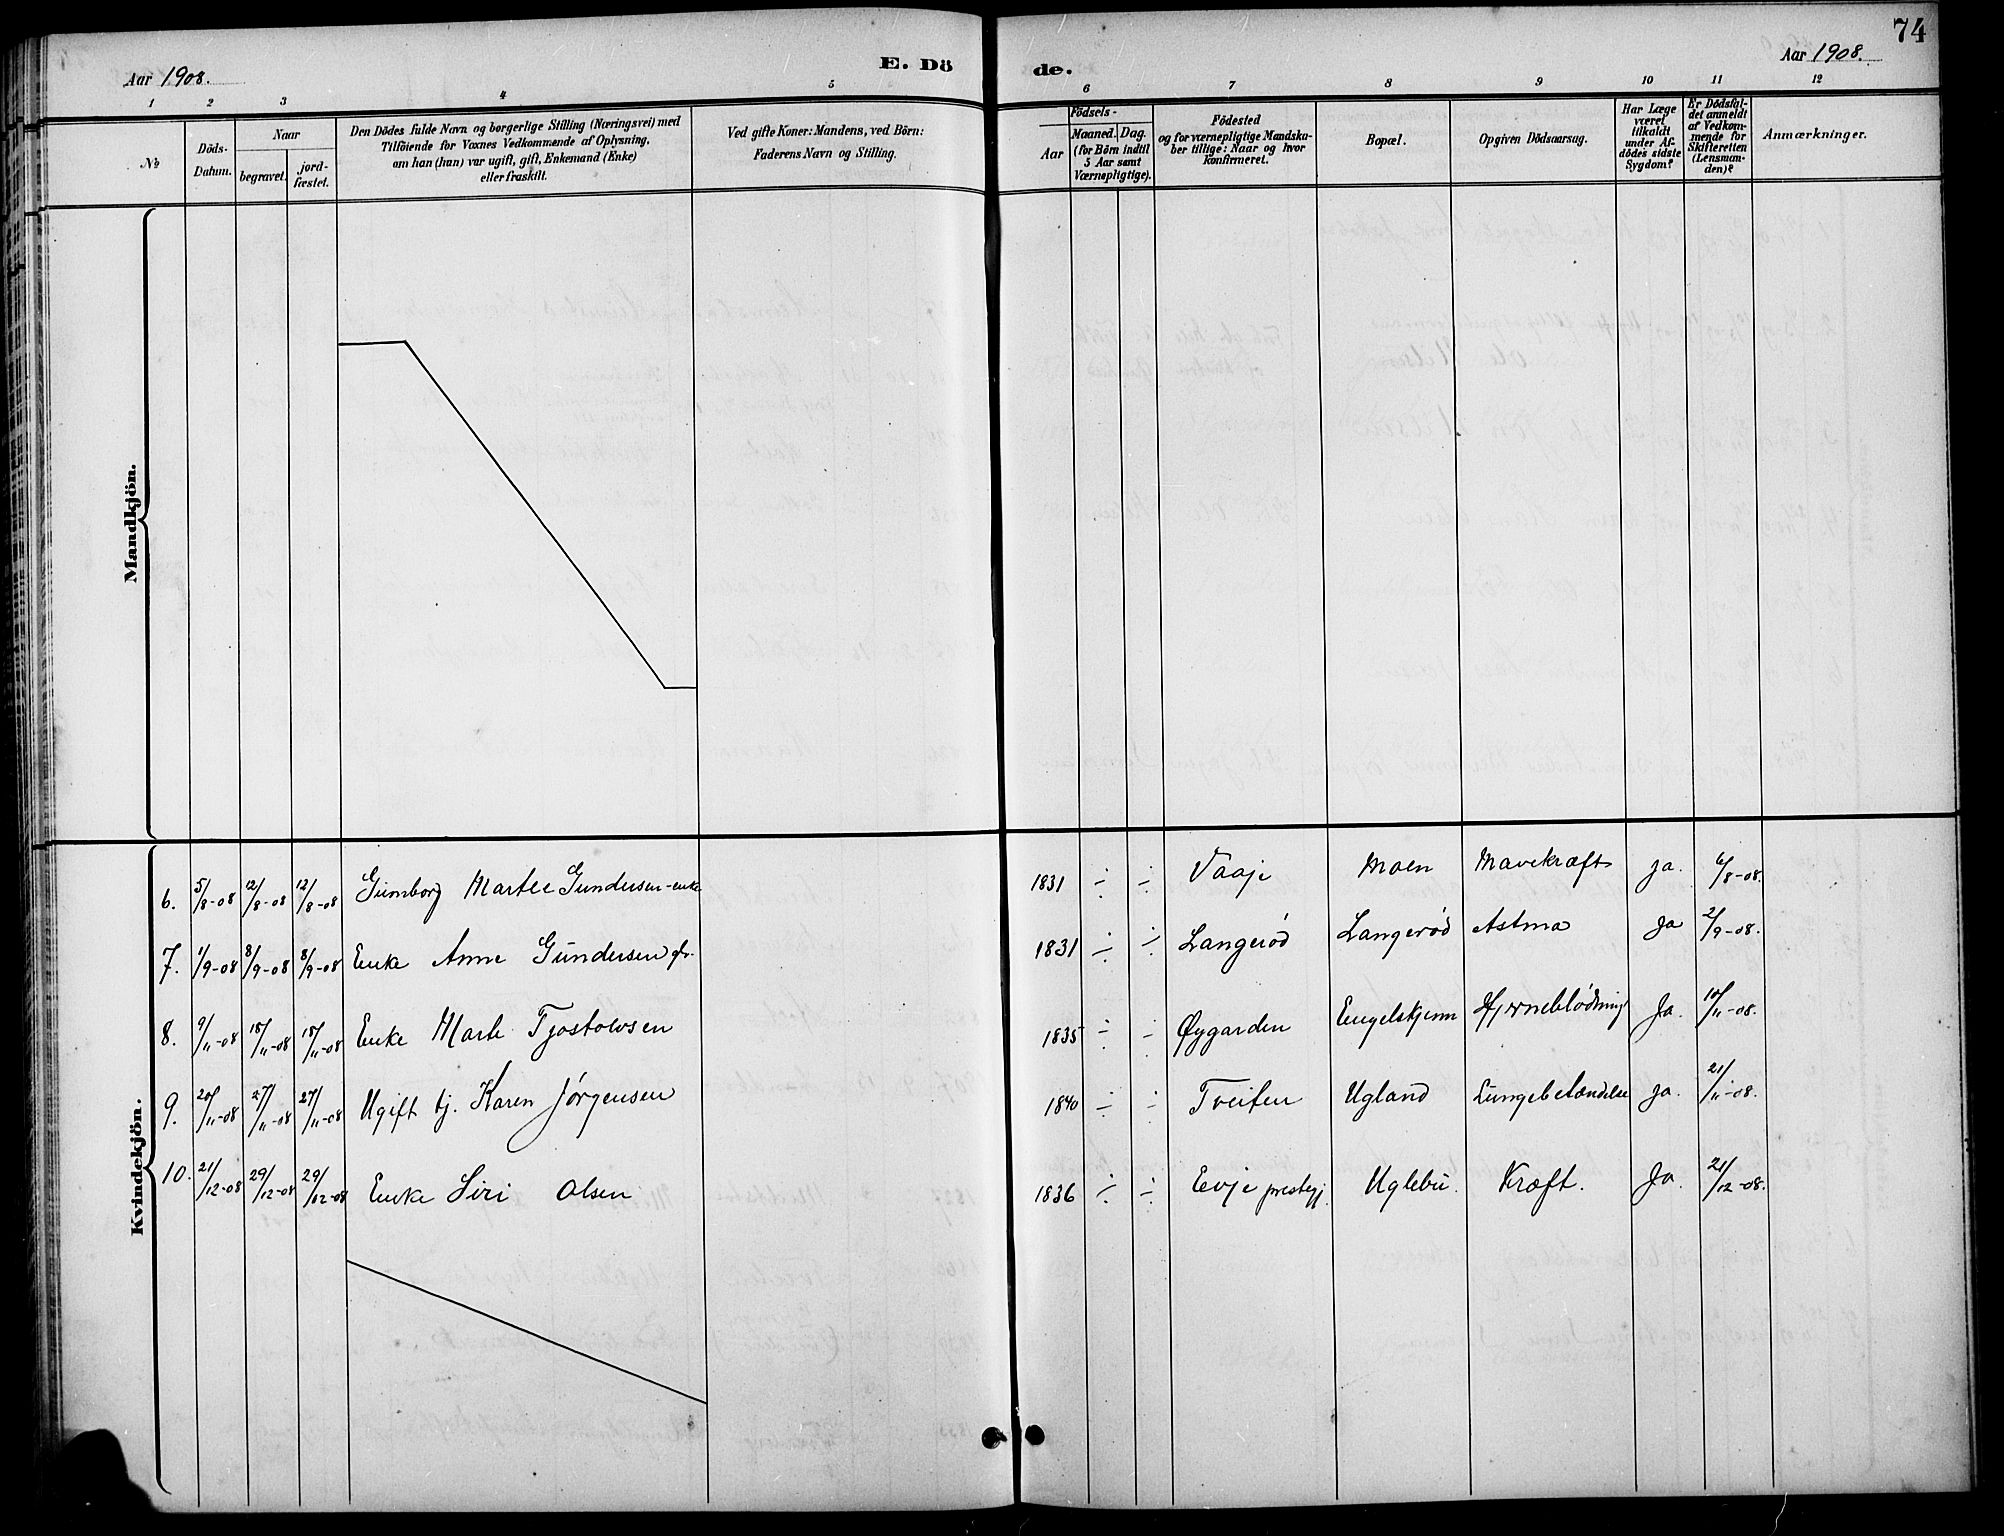 74
Aar 1908. E. Dö de. Aar 1908.
1 2 3 4 5 6 7 8 9 10 11 12
No
Döds-Datum.
Naar
begravet.
jord-fæstet.
Den Dödes fulde Navn og borgerlige Stilling (Næringsvei) med
Tilföiende for Voxnes Vedkommende af Oplysning,
om han (hun) var ugift, gift, Enkemand (Enke)
eller fraskilt.
Ved gifte Koner: Mandens, ved Börn:
Faderens Navn og Stilling.
Födsels-
Aar
Maaned. Dag.
(for Börn indtil
5 Aar samt
Værnepligtige).
Födested
og for værnepligtige Mandska-
ber tillige: Naar og hvor
konfirmeret.
Bopæl.
Opgiven Dödsaarsag.
Har Læge
været
tilkaldt
under Af-
dödes sidste
Sygdom?
Er Dödsfal-
det anmeldt
af Vedkom-
mende for
Skifteretten
(Lensman-
den)?
Anmærkninger.
Mandkjön.
Kvindekjön.
6. 5/8-08 12/8-08 12/8-08 Gunborg Marte Gundersen - enke 1831 ÷ ÷ Vaaje Moen Mavekræft ja. 6/8-08.
7. 1/9-08 8/9-08 8/9-08 Enke Anne Gundersen 1831 ÷ ÷ Langerød Langerød Astma Ja 2/9-08.
8. 9/11-08 18/11-08 18/11-08 Enke Marte Tjostolvsen 1835 ÷ ÷ Øygarden Engelskjønn Hjerneblødning Ja. 10/11-08.
9. 20/11-08 27/11-08 27/11-08 Ugift tj. Karen Jørgensen 1840 ÷ ÷ Tveiten Ugland Lungebetændelse Ja. 21/11-08.
10. 21/12-08 29/12-08 29/12-08 Enke Siri Olsen 1836 ÷ ÷ Evje prestegj. Uglebu. Kræft. Ja. 21/12-08.